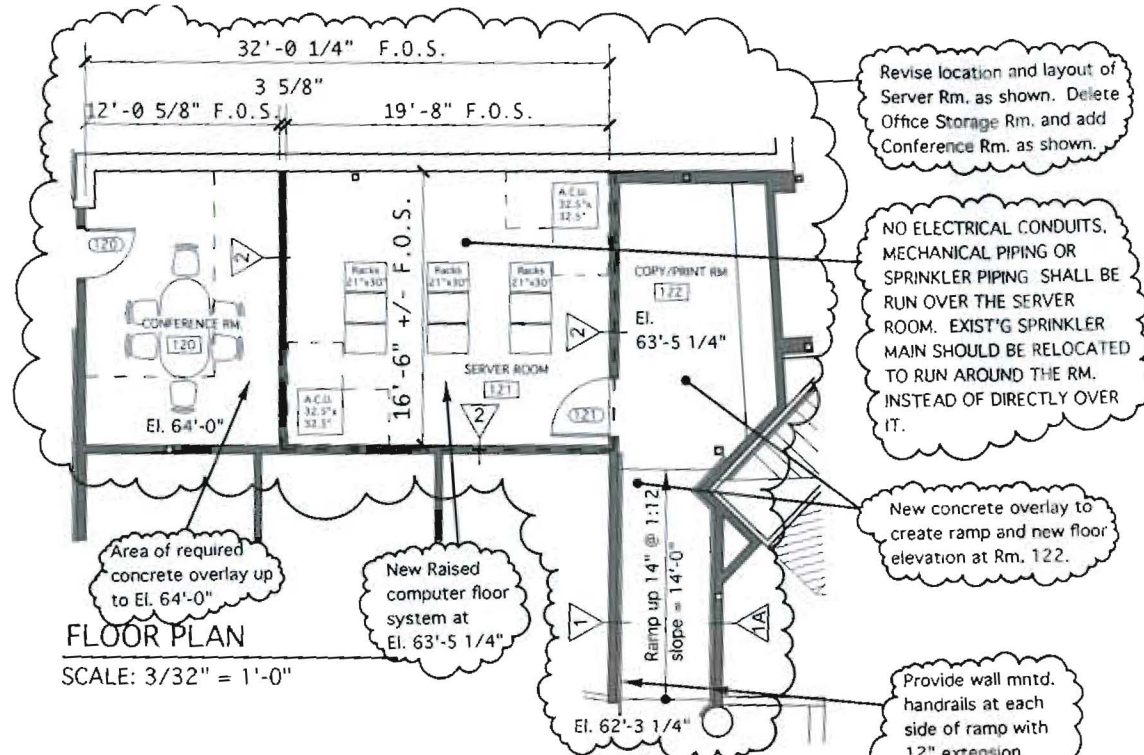 32'-0 1/4" F.O.S.
3 5/8"
12'-0 5/8" F.O.S.
19'-8" F.O.S.
Revise location and layout of
Server Rm. as shown. Delete
Office Storage Rm. and add
Conference Rm. as shown.
NO ELECTRICAL CONDUITS,
MECHANICAL PIPING OR
SPRINKLER PIPING SHALL BE
RUN OVER THE SERVER
ROOM. EXIST'G SPRINKLER
MAIN SHOULD BE RELOCATED
TO RUN AROUND THE RM.
INSTEAD OF DIRECTLY OVER
IT.
A.C.U.
32.5"x
32.5"
120
2
16'-6" +/- F.O.S.
Racks
21"x30"
Racks
21"x30"
Racks
21"x30"
COPY/PRINT RM
122
El.
63'-5 1/4"
2
CONFERENCE RM.
120
El. 64'-0"
SERVER ROOM
121
A.C.U.
32.5"x
32.5"
2
121
New concrete overlay to
create ramp and new floor
elevation at Rm. 122.
Area of required
concrete overlay up
to El. 64'-0"
New Raised
computer floor
system at
El. 63'-5 1/4"
Ramp up 14" @ 1:12
slope = 14'-0"
1
1A
FLOOR PLAN
SCALE: 3/32" = 1'-0"
El. 62'-3 1/4"
Provide wall mntd.
handrails at each
side of ramp with
12" extension